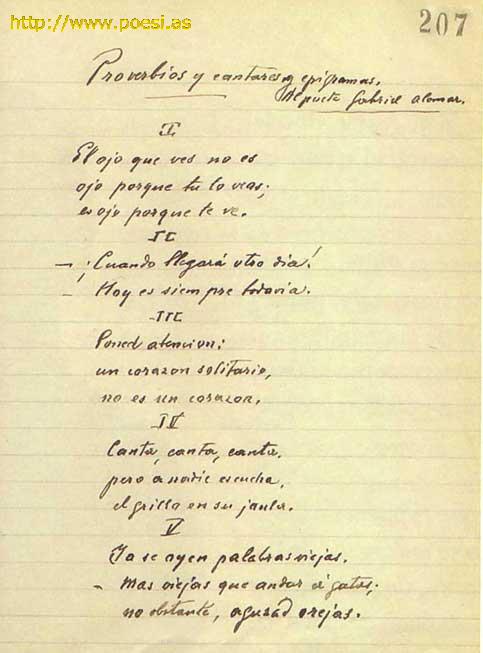 http://www.poesi.as
207
Proverbios y cantares y epigramas.
Al poeta Gabriel Alomar.
I
El ojo que ves no es
ojo porque tu lo veas;
es ojo porque te ve.
II
– ¡Cuando llegará otro dia!
– Hoy es siempre todavia.
III
Poned atencion:
un corazon solitario,
no es un corazon.
IV
Canta, canta, canta,
pero a nadie escucha,
el grillo en su jaula.
V
Ya se oyen palabras viejas.
– mas viejas que andar á gatas;
no obstante, aguzad orejas.